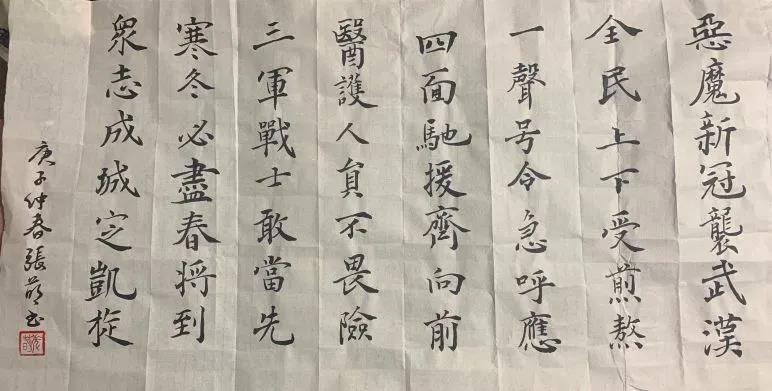 惡魔新冠襲武漢
全民上下受煎熬
一聲号令急呼應
四面馳援齊向前
醫護人員不畏險
三軍戰士敢當先
寒冬必盡春将到
衆志成城定凱旋
庚子仲春張萌书